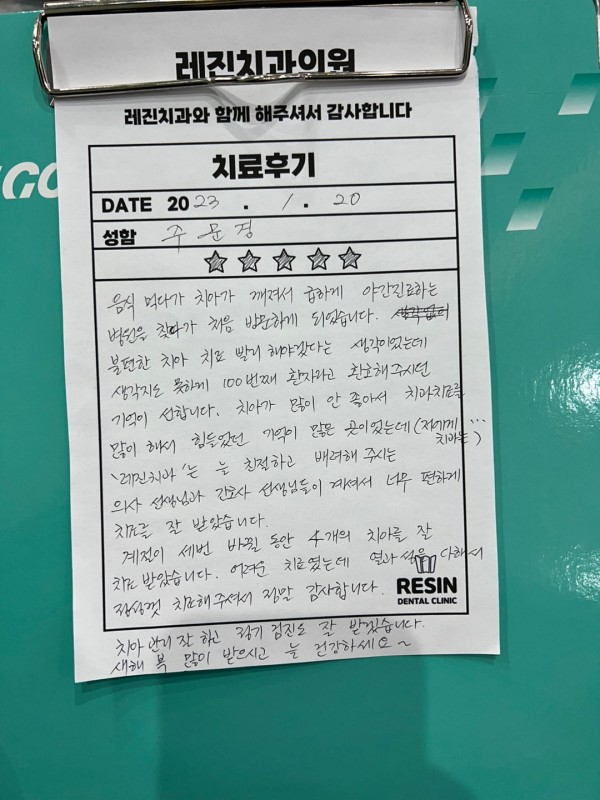 레진치과의원
레진치과와 함께 해주셔서 감사합니다
치료후기
DATE 2023 . 1 . 20
성함 주문경
음식 먹다가 치아가 깨져서 급하게 야간진료하는
병원을 찾다가 처음 방문하게 되었습니다.
불편한 치아 치료 빨리 해야겠다는 생각이었는데
생각지도 못하게 100번째 환자라고 환호해주시던
기억이 선합니다. 치아가 많이 안 좋아서 치과치료를
많이 해서 힘들었던 기억이 많은 곳이었는데 (저에게 치과는…)
'레진치과'는 늘 친절하고 배려해 주시는
의사 선생님과 간호사 선생님들이 계셔서 너무 편하게
치료를 잘 받았습니다.
계절이 세번 바뀔 동안 4개의 치아를 잘
치료 받았습니다. 어려운 치료였는데 열과 성을 다해서
정성껏 치료해주셔서 정말 감사합니다.
RESIN
DENTAL CLINIC
치아 관리 잘 하고 정기 검진도 잘 받겠습니다.
새해 복 많이 받으시고 늘 건강하세요~